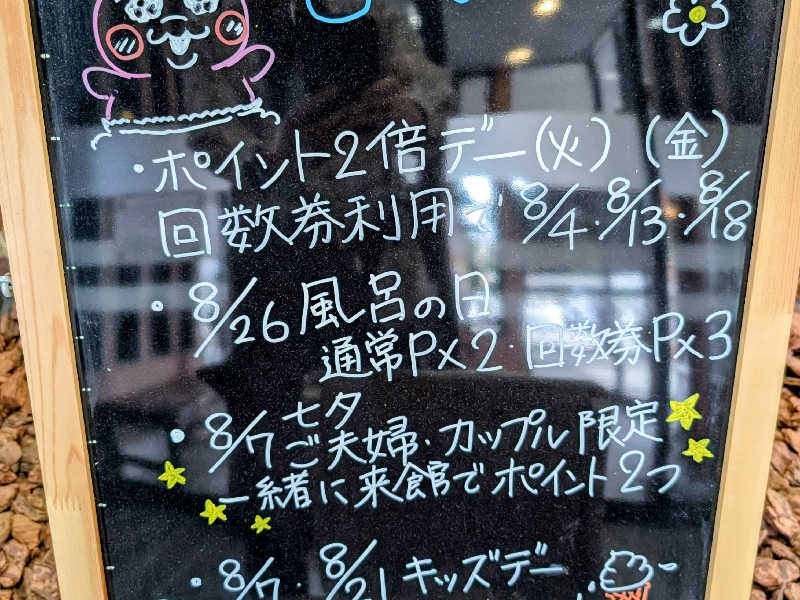 ・ポイント2倍デー(火)(金)
回数券利用で 8/4・8/13・8/18
・8/26 風呂の日
通常P×2・回数券P×3
・8/7 七夕
ご夫婦・カップル限定
一緒に来館でポイント2つ
・8/7・8/21 キッズデー